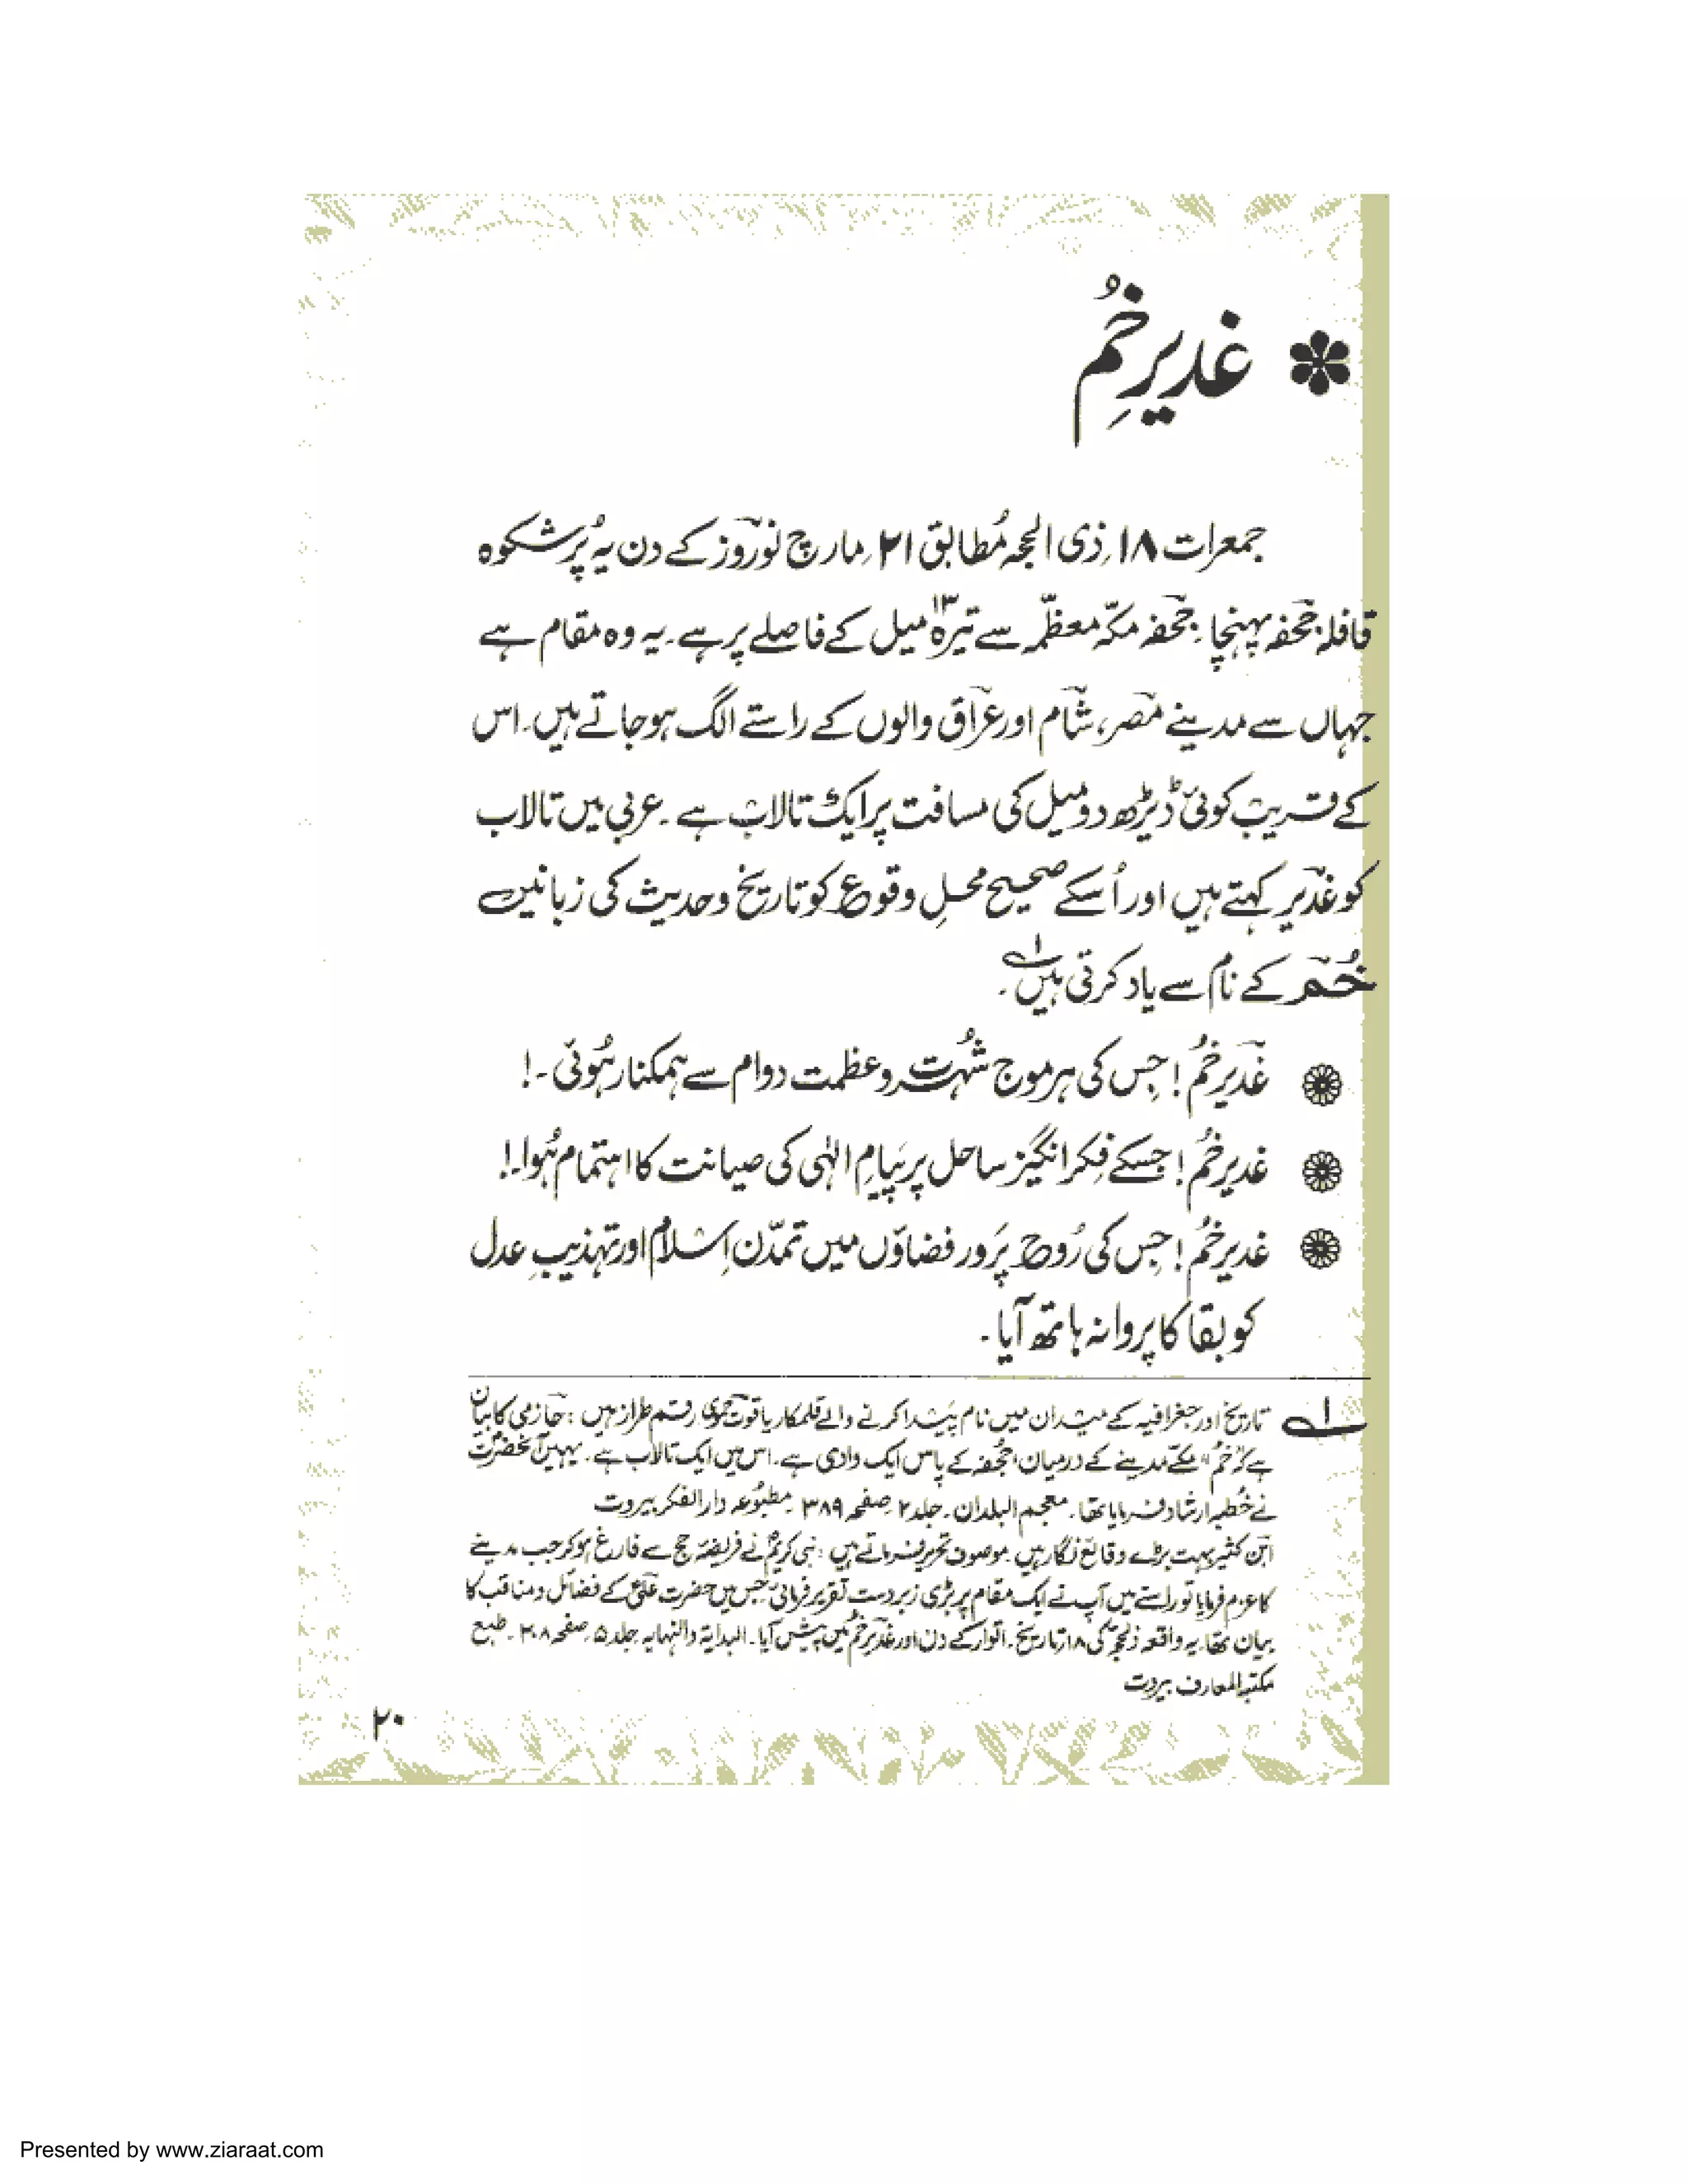 غدیرِ خُم
جمعرات ۱۸؍ ذی الحجہ مُطابق ۲۱؍ مارچ نوروز کے دن یہ پُرشکوہ
قافلہ جحفہ پہنچا۔ جحفہ مکّہ معظّمہ سے تیرہ ۱۳ میل کے فاصلے پر ہے۔ یہ وہ مقام ہے
جہاں سے مدینے مصر، شام اور عراق والوں کے راستے الگ ہوجاتے ہیں۔ اس
کے قریب کوئی ڈیڑھ دو میل کی مسافت پر ایک تالاب ہے۔ عربی میں تالاب
کو غدیر کہتے ہیں اور اُسکے صحیح محلِ وقوع کو تاریخ و حدیث کی زبانیں
خُم کے نام سے یاد کرتی ہیں ۱؎۔
غدیرِ خُم! جِس کی ہر موج شُہرت و عظمت دوام سے ہمکنار ہُوئی۔!
غدیرِ خُم! جسکے فِکر انگیز ساحل پر پَیامِ الٰہی کی صیانت کا اہتمام ہُوا۔!
غدیرِ خُم! جِس کی رُوح پَرور فضاؤں میں تمدّن اِسلام اور تہذیبِ عدل
کو بقا کا پروانہ ہاتھ آیا۔
۱؎ تاریخ اور جغرافیہ کے میدان میں نام پَیدا کرنے والے قلمکار یاقوت حموی رقم طراز ہیں: حازمی کا بیان
ہے کہ "خُم" مکّے مدینے کے درمیان، جُحفہ کے پاس ایک وادی ہے۔ اس میں ایک تالاب ہے۔ یہیں آنحضرتؐ
نے خُطبہ ارشاد فرمایا تھا۔ معجم البلدان۔ جلد ۲۔ صفحہ ۳۸۹۔ مطبُوعہ دارالفکر بیروت
ابن کثیر بہت بڑے وقائع نگار ہیں۔ موصوف تحریر فرماتے ہیں: نبی کریمؐ نے فریضۂ حج سے فارغ ہوکر جب مدینے
کا عزم فرمایا تو راستے میں آپ نے ایک مقام پر بڑی زبردست تقریر فرمائی جس میں حضرت علیؑ کے فضائل و مناقب کا
بیان تھا۔ یہ واقعہ ذلحجہ کی ۱۸؍ تاریخ۔ اتوار کے دن اور غدیرِ خُم میں پیش آیا۔ البدایۃ والنہایہ جلد ۵۔ صفحہ ۲۰۸۔ طبع
مکتبۃ المعارف بیروت
۲۰
Presented by www.ziaraat.com